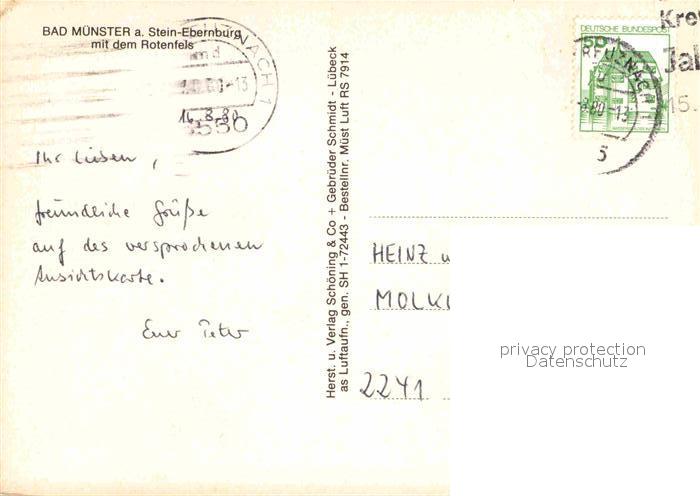 BAD MÜNSTER a. Stein-Ebernburg
mit dem Rotenfels
14.8.80
Ihr Lieben,
freundliche Grüße
auf des versprochenen
Ansichtskarte.
Euer Peter
Herst. u. Verlag Schöning & Co + Gebrüder Schmidt - Lübeck
as Luftaufn., gen. SH 1-72443 - Bestellnr. Müst Luft RS 7914
DEUTSCHE BUNDESPOST
50
Kre
Jal
15.
HEINZ u
MOLK
2241
privacy protection
Datenschutz